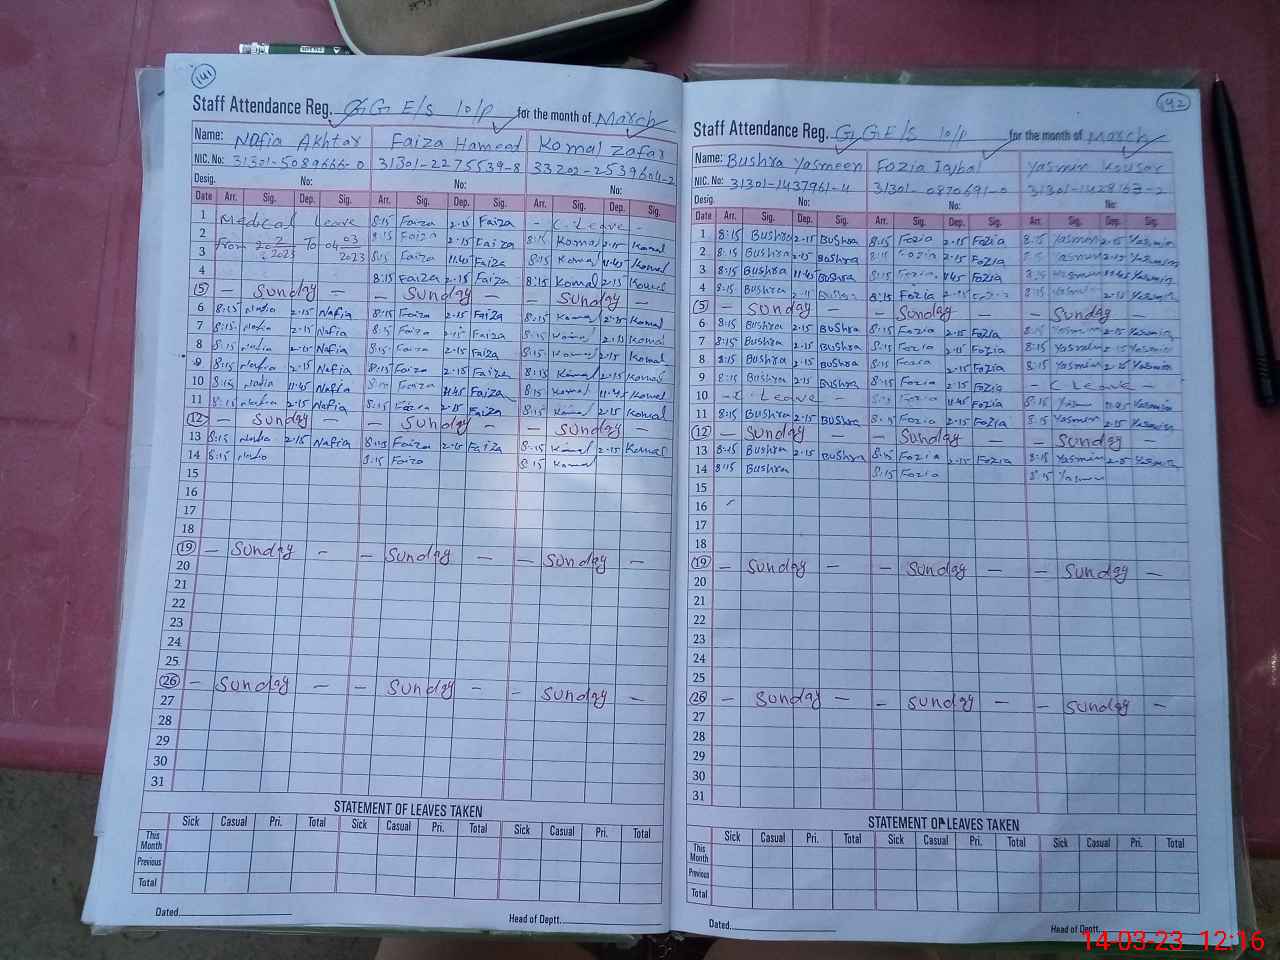 141
Staff Attendance Reg. GGE/S 10/P for the month of March
Name: Nafia Akhtar Faiza Hameed Komal Zafar
NIC. No: 31301-5089666-0 31301-2275539-8 33202-2539604-2
Desig. No: No: No:
Date Arr. Sig. Dep. Sig. Arr. Sig. Dep. Sig. Arr. Sig. Dep. Sig.
1 Medical Leave 8:15 Faiza 2:15 Faiza - C. Leave -
2 From To 8:15 Faiza 2:15 Faiza 8:15 Komal 2:15 Komal
3 2023 2023 8:15 Faiza 11:45 Faiza 8:15 Komal 11:45 Komal
4 8:15 Faiza 2:15 Faiza 8:15 Komal 2:15 Komal
(5) - Sunday - - Sunday - - Sunday -
6 8:15 Nafia 2:15 Nafia 8:15 Faiza 2:15 Faiza 8:15 Komal 2:15 Komal
7 8:15 Nafia 2:15 Nafia 8:15 Faiza 2:15 Faiza 8:15 Komal 2:15 Komal
8 8:15 Nafia 2:15 Nafia 8:15 Faiza 2:15 Faiza 8:15 Komal 2:15 Komal
9 8:15 Nafia 2:15 Nafia 8:15 Faiza 2:15 Faiza 8:15 Komal 2:15 Komal
10 8:15 Nadia 11:45 Nafia Faiza 11:45 Faiza 8:15 Komal 11:45 Komal
11 8:15 Nafia 2:15 Nafia 8:15 Faiza 2:15 Faiza 8:15 Komal 2:15 Komal
(12) - Sunday - - Sunday - - Sunday -
13 8:15 Nafia 2:15 Nafia 8:15 Faiza 2:15 Faiza 8:15 Komal 2:15 Komal
14 8:15 Nafia 8:15 Faiza 8:15 Komal
15
16
17
18
(19) - Sunday - - Sunday - - Sunday -
20
21
22
23
24
25
(26) - Sunday - - Sunday - - Sunday -
27
28
29
30
31
STATEMENT OF LEAVES TAKEN
Sick Casual Pri. Total Sick Casual Pri. Total Sick Casual Pri. Total
This Month
Previous
Total
Dated Head of Deptt.
142
Staff Attendance Reg. GGE/S 10/P for the month of March
Name: Bushra Yasmeen Fozia Iqbal Yasmin Kousar
NIC. No: 31301-1437961-4 31301-0870691-0 31301-1428163-2
Desig. No: No: No:
Date Arr. Sig. Dep. Sig. Arr. Sig. Dep. Sig. Arr. Sig. Dep. Sig.
1 8:15 Bushra 2:15 Bushra 8:15 Fozia 2:15 Fozia 8:15 Yasmin 2:15 Yasmin
2 8:15 Bushra 2:15 Bushra 8:15 Fozia 2:15 Fozia 8:15 Yasmin 2:15 Yasmin
3 8:15 Bushra 11:45 Bushra 8:15 Fozia 11:45 Fozia 8:15 Yasmin 11:45 Yasmin
4 8:15 Bushra 2:15 Bushra 8:15 Fozia 2:15 Fozia 8:15 Yasmin 2:15 Yasmin
(5) - Sunday - - Sunday - - Sunday -
6 8:15 Bushra 2:15 Bushra 8:15 Fozia 2:15 Fozia 8:15 Yasmin 2:15 Yasmin
7 8:15 Bushra 2:15 Bushra 8:15 Fozia 2:15 Fozia 8:15 Yasmin 2:15 Yasmin
8 8:15 Bushra 2:15 Bushra 8:15 Fozia 2:15 Fozia 8:15 Yasmin 2:15 Yasmin
9 8:15 Bushra 2:15 Bushra 8:15 Fozia 2:15 Fozia - C Leave -
10 - C. Leave - 8:15 Fozia 11:45 Fozia 8:15 Yasmin 11:45 Yasmin
11 8:15 Bushra 2:15 Bushra 8:15 Fozia 2:15 Fozia 8:15 Yasmin 2:15 Yasmin
(12) - Sunday - - Sunday - - Sunday -
13 8:15 Bushra 2:15 Bushra 8:15 Fozia 2:15 Fozia 8:15 Yasmin 2:15 Yasmin
14 8:15 Bushra 8:15 Fozia 8:15 Yasmin
15
16
17
18
(19) - Sunday - - Sunday - - Sunday -
20
21
22
23
24
25
(26) - Sunday - - Sunday - - Sunday -
27
28
29
30
31
STATEMENT OF LEAVES TAKEN
Sick Casual Pri. Total Sick Casual Pri. Total Sick Casual Pri. Total
This Month
Previous
Total
Dated Head of Deptt.
14-03-23 12:16